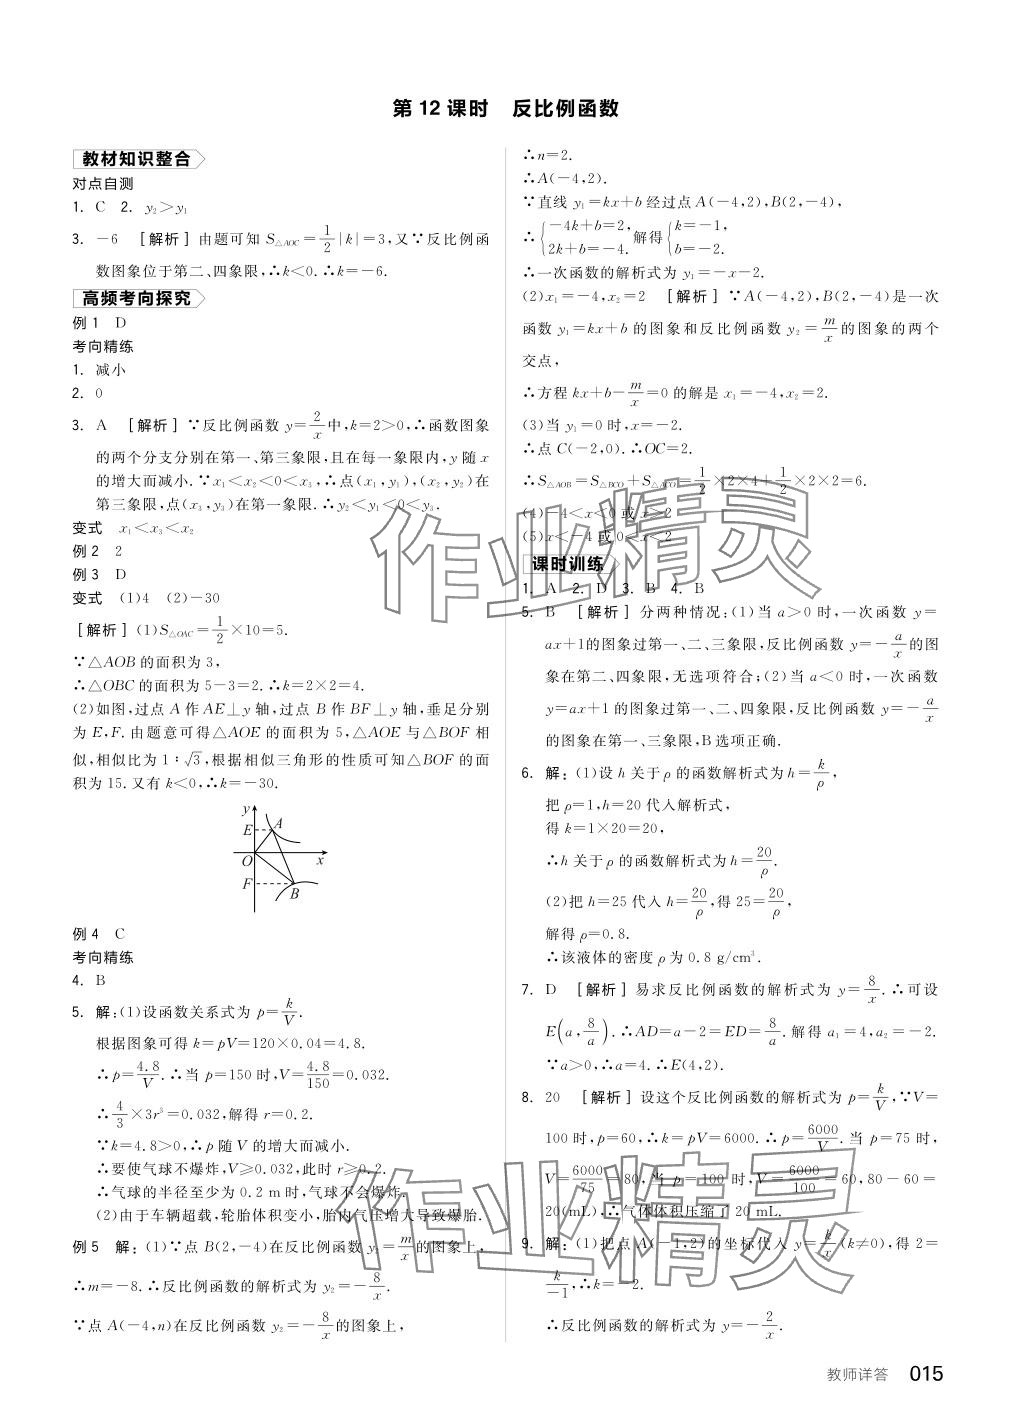 第 12 课时　反比例函数
教材知识整合
对点自测
1. C　2. y₂＞y₁
3. －6　[解析] 由题可知 S△AOC＝1/2|k|＝3,又∵反比例函
数图象位于第二、四象限,∴k＜0.∴k＝－6.
高频考向探究
例 1　D
考向精练
1. 减小
2. 0
3. A　[解析] ∵反比例函数 y＝2/x中,k＝2＞0,∴函数图象
的两个分支分别在第一、第三象限,且在每一象限内,y 随 x
的增大而减小.∵x₁＜x₂＜0＜x₃,∴点(x₁,y₁),(x₂,y₂)在
第三象限,点(x₃,y₃)在第一象限.∴y₂＜y₁＜0＜y₃.
变式　x₁＜x₃＜x₂
例 2　2
例 3　D
变式　(1)4　(2)－30
[解析] (1)S△OAC＝1/2×10＝5.
∵△AOB 的面积为 3,
∴△OBC 的面积为 5－3＝2.∴k＝2×2＝4.
(2)如图,过点 A 作 AE⊥y 轴,过点 B 作 BF⊥y 轴,垂足分别
为 E,F.由题意可得△AOE 的面积为 5,△AOE 与△BOF 相
似,相似比为 1∶√3,根据相似三角形的性质可知△BOF 的面
积为 15.又有 k＜0,∴k＝－30.
y
E
A
O
x
F
B
例 4　C
考向精练
4. B
5. 解:(1)设函数关系式为 p＝k/V.
根据图象可得 k＝pV＝120×0.04＝4.8.
∴p＝4.8/V.∴当 p＝150 时,V＝4.8/150＝0.032.
∴4/3×3r³＝0.032,解得 r＝0.2.
∵k＝4.8＞0,∴p 随 V 的增大而减小.
∴要使气球不爆炸,V≥0.032,此时 r≥0.2.
∴气球的半径至少为 0.2 m 时,气球不会爆炸.
(2)由于车辆超载,轮胎体积变小,胎内气压增大导致爆胎.
例 5　解:(1)∵点 B(2,－4)在反比例函数 y₂＝m/x的图象上,
∴m＝－8.∴反比例函数的解析式为 y₂＝－8/x.
∵点 A(－4,n)在反比例函数 y₂＝－8/x的图象上,
∴n＝2.
∴A(－4,2).
∵直线 y₁＝kx＋b 经过点 A(－4,2),B(2,－4),
∴{－4k＋b＝2, 2k＋b＝－4. 解得{k＝－1, b＝－2.
∴一次函数的解析式为 y₁＝－x－2.
(2)x₁＝－4,x₂＝2　[解析] ∵A(－4,2),B(2,－4)是一次
函数 y₁＝kx＋b 的图象和反比例函数 y₂＝m/x的图象的两个
交点,
∴方程 kx＋b－m/x＝0 的解是 x₁＝－4,x₂＝2.
(3)当 y₁＝0 时,x＝－2.
∴点 C(－2,0).∴OC＝2.
∴S△AOB＝S△BCO＋S△ACO＝1/2×2×4＋1/2×2×2＝6.
(4)－4＜x＜0 或 x＞2
(5)x＜－4 或 0＜x＜2
课时训练
1. A　2. D　3. B　4. B
5. B　[解析] 分两种情况:(1)当 a＞0 时,一次函数 y＝
ax＋1的图象过第一、二、三象限,反比例函数 y＝－a/x的图
象在第二、四象限,无选项符合;(2)当 a＜0 时,一次函数
y＝ax＋1 的图象过第一、二、四象限,反比例函数 y＝－a/x
的图象在第一、三象限,B 选项正确.
6. 解:(1)设 h 关于 ρ 的函数解析式为 h＝k/ρ,
把 ρ＝1,h＝20 代入解析式,
得 k＝1×20＝20,
∴h 关于 ρ 的函数解析式为 h＝20/ρ.
(2)把 h＝25 代入 h＝20/ρ,得 25＝20/ρ,
解得 ρ＝0.8.
∴该液体的密度 ρ 为 0.8 g/cm³.
7. D　[解析] 易求反比例函数的解析式为 y＝8/x.∴可设
E(a,8/a).∴AD＝a－2＝ED＝8/a.解得 a₁＝4,a₂＝－2.
∵a＞0,∴a＝4.∴E(4,2).
8. 20　[解析] 设这个反比例函数的解析式为 p＝k/V,∵V＝
100 时,p＝60,∴k＝pV＝6000.∴p＝6000/V.当 p＝75 时,
V＝6000/75＝80,当 p＝100 时,V＝6000/100＝60,80－60＝
20(mL),∴气体体积压缩了 20 mL.
9. 解:(1)把点 A(－1,2)的坐标代入 y＝k/x(k≠0),得 2＝
k/－1,∴k＝－2.
∴反比例函数的解析式为 y＝－2/x.
作业精灵
作业精灵
教师详答　015